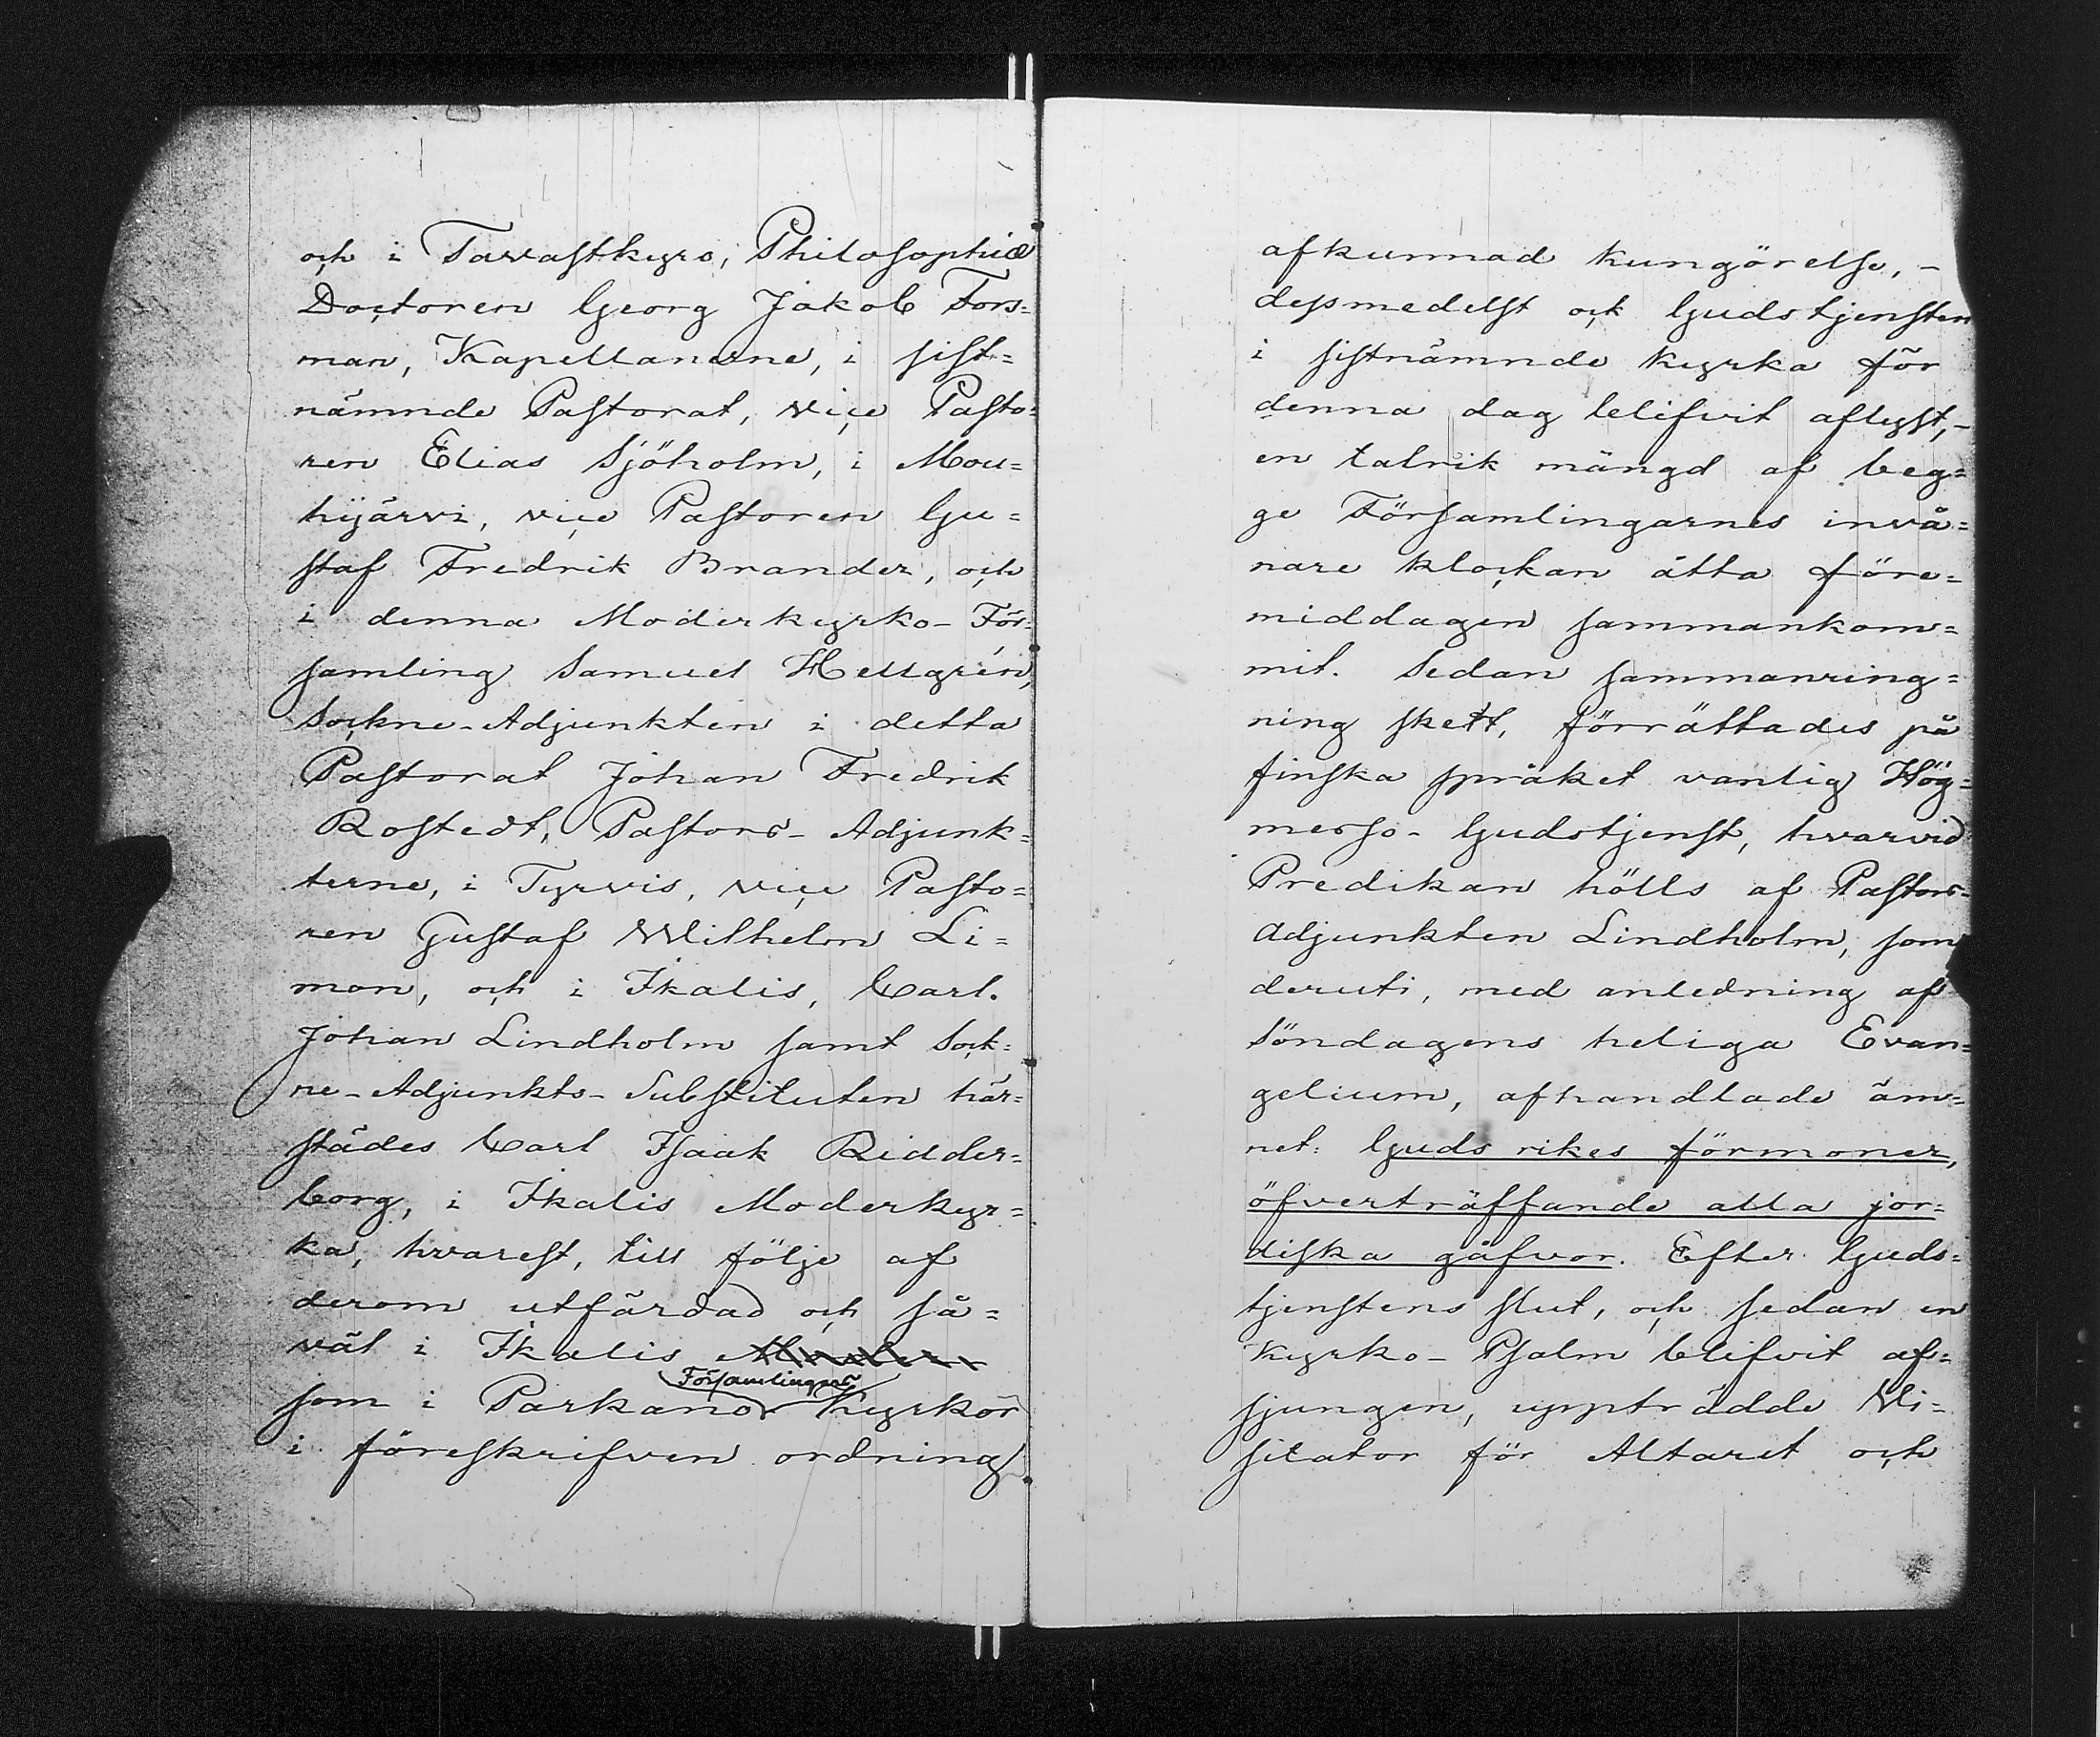 och i Tavastkyro, Philosophiæ
Doctoren Georg Jakob Fors=
man, Kapellanerne, i sist=
nämnde Pastorat, vice Pasto=
ren Elias Sjöholm, i Mou=
hijärvi, vice Pastoren Gu=
staf Fredrik Brander, och
i denna Moderkyrko-För=
samling Samuel Hellgrén,
Sockne-Adjunkten i detta
Pastorat Johan Fredrik
Rostedt, Pastors-Adjunk=
terne, i Tyrvis, vice Pasto=
ren Gustaf Wilhelm Li=
mon, och i Ikalis, Carl
Johan Lindholm samt Sock=
ne-Adjunkts-Substituten här=
städes Carl Isaak Ridder=
borg, i Ikalis Moderkyr=
ka, hvarest, till följe af
derom utfärdad och så=
väl i Ikalis
Församlingars
som i Parkano Kyrkor
i föreskrifven ordning
afkunnad kungörelse, -
dessmedelst ock Gudstjensten
i sistnämnde kyrka för
denna dag blifvit aflyst, -
en talrik mängd af beg=
ge Församlingarnes invå=
nare klockan åtta före=
middagen sammankom=
mit. Sedan sammanring=
ning skett, förrättades på
finska språket vanlig Hög=
messo-Gudstjenst, hvarvid
Predikan hölls af Pastors-
adjunkten Lindholm, som
deruti, med anledning af
Söndagens heliga Evan=
gelium, afhandlade äm=
net: Guds rikes förmoner,
öfverträffande alla jor=
diska gåfvor. Efter Guds=
tjenstens slut, och sedan en
Kyrko-Psalm blifvit af=
sjungen, uppträdde Vi=
sitator för Altaret och